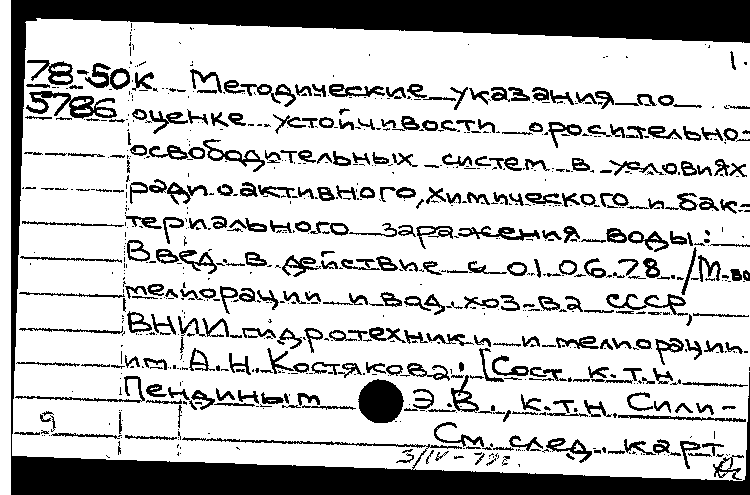 1.
78-50к Методические указания по
5786 оценке устойчивости оросительно-
освободительных систем в условиях
радиоактивного, химического и бак-
териального заражения воды:
Введ. в действие с 01.06.78 / М-во
мелиорации и вод. хоз-ва СССР,
ВНИИ гидротехники и мелиорации
им. А.Н. Костякова; [Сост. к.т.н.
Пендиным Э.В., к.т.н. Сили-
9 См. след. карт
3/IV-79г.